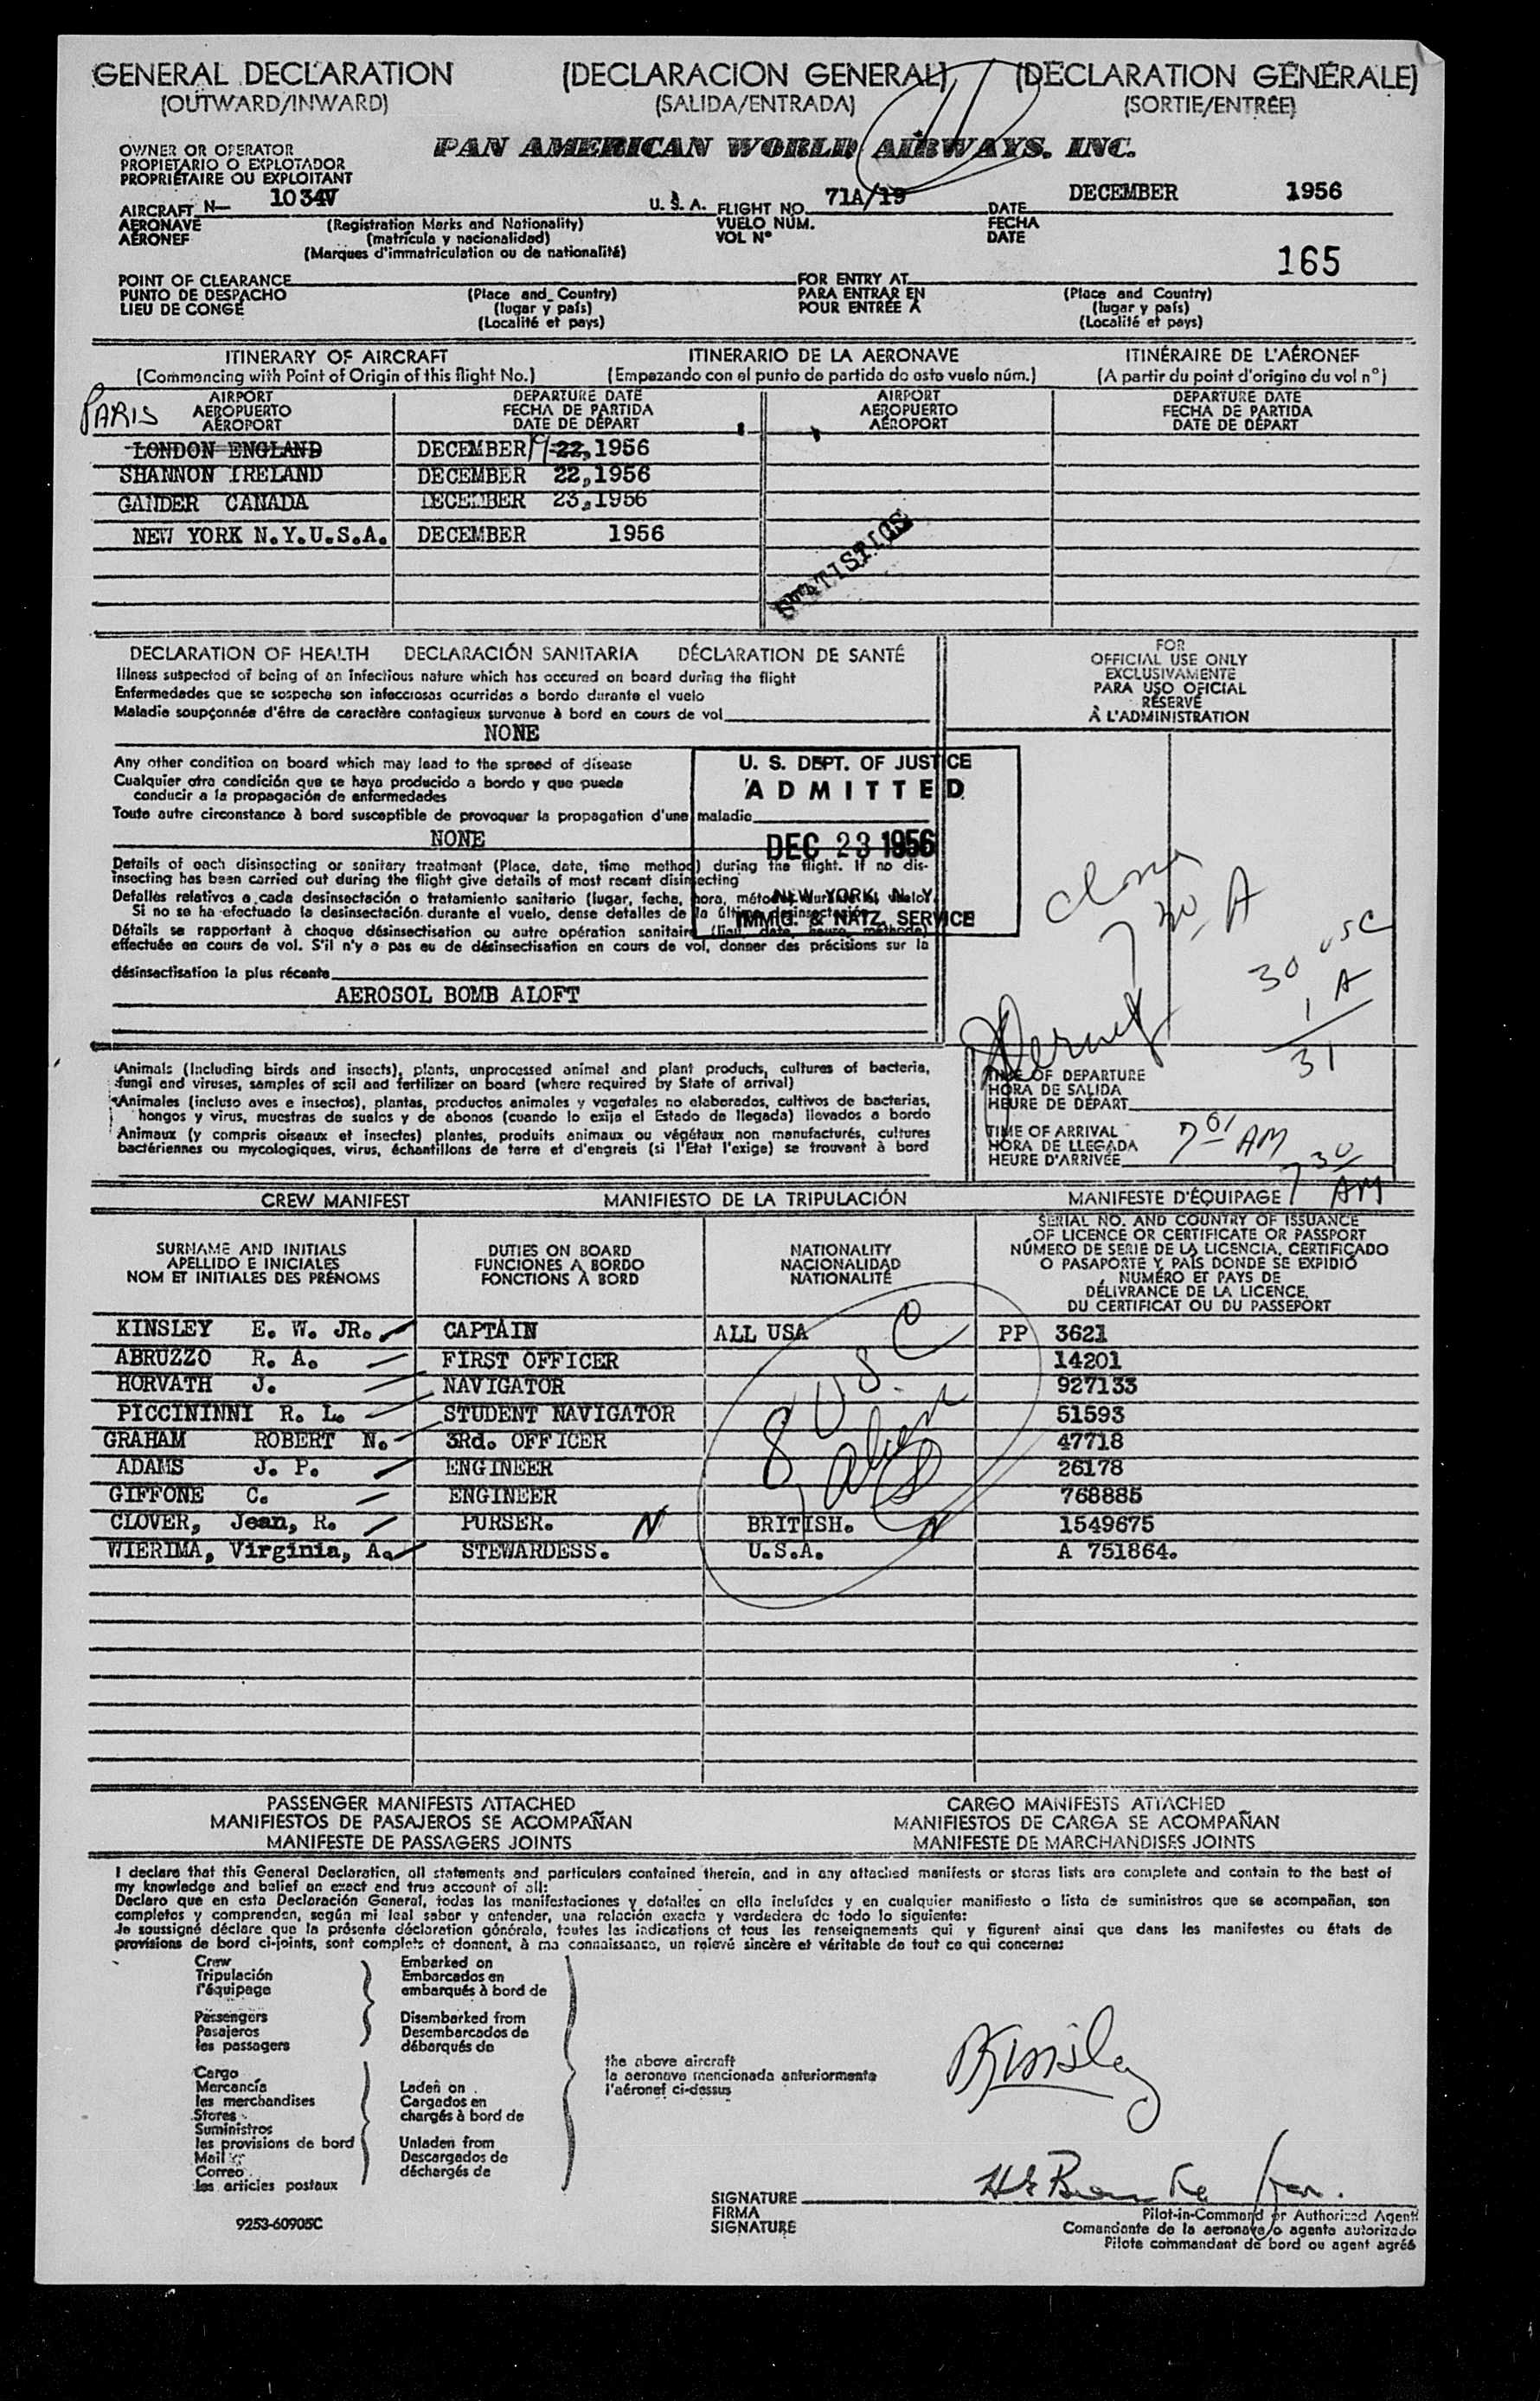 GENERAL DECLARATION (DECLARACION GENERAL) (DÉCLARATION GÉNÉRALE)
(OUTWARD/INWARD) (SALIDA/ENTRADA) (SORTIE/ENTRÉE)
PAN AMERICAN WORLD AIRWAYS, INC.
OWNER OR OPERATOR
PROPIETARIO O EXPLOTADOR
PROPRIÉTAIRE OU EXPLOITANT
AIRCRAFT N— 1034V U. S. A. FLIGHT NO. 71A/19 DATE DECEMBER 1956
AERONAVE (Registration Marks and Nationality) VUELO NÚM. FECHA
AÉRONEF (matrícula y nacionalidad) VOL N° DATE
(Marques d'immatriculation ou de nationalité)
165
POINT OF CLEARANCE FOR ENTRY AT
PUNTO DE DESPACHO (Place and Country) PARA ENTRAR EN (Place and Country)
LIEU DE CONGÉ (lugar y país) POUR ENTRÉE À (lugar y país)
(Localité et pays) (Localité et pays)
ITINERARY OF AIRCRAFT ITINERARIO DE LA AERONAVE ITINÉRAIRE DE L'AÉRONEF
(Commencing with Point of Origin of this flight No.) (Empezando con el punto de partida de este vuelo núm.) (A partir du point d'origine du vol n°)
AIRPORT DEPARTURE DATE AIRPORT DEPARTURE DATE
AEROPUERTO FECHA DE PARTIDA AEROPUERTO FECHA DE PARTIDA
AÉROPORT DATE DE DÉPART AÉROPORT DATE DE DÉPART
PARIS
LONDON ENGLAND DECEMBER 19 22, 1956
SHANNON IRELAND DECEMBER 22, 1956
GANDER CANADA DECEMBER 23, 1956
NEW YORK N.Y.U.S.A. DECEMBER 1956
STATISTICS
DECLARATION OF HEALTH DECLARACIÓN SANITARIA DÉCLARATION DE SANTÉ
Illness suspected of being of an infectious nature which has occured on board during the flight
Enfermedades que se sospecha son infecciosas ocurridas a bordo durante el vuelo
Maladie soupçonnée d'être de caractère contagieux survenue à bord en cours de vol
NONE
Any other condition on board which may lead to the spread of disease
Cualquier otra condición que se haya producido a bordo y que puede
conducir a la propagación de enfermedades
Toute autre circonstance à bord susceptible de provoquer la propagation d'une maladie
NONE
Details of each disinsecting or sanitary treatment (Place, date, time method) during the flight. If no dis-
insecting has been carried out during the flight give details of most recent disinsecting
Detalles relativos a cada desinsectación o tratamiento sanitario (lugar, fecha, hora, método) durante el vuelo.
Si no se ha efectuado la desinsectación durante el vuelo, dense detalles de la última desinsectación
Détails se rapportant à chaque désinsectisation ou autre opération sanitaire (lieu, date, heure, méthode)
effectuée en cours de vol. S'il n'y a pas eu de désinsectisation en cours de vol, donner des précisions sur la
désinsectisation la plus récente
AEROSOL BOMB ALOFT
U. S. DEPT. OF JUSTICE
ADMITTED
DEC 23 1956
NEW YORK, N. Y.
IMMIG. & NATZ. SERVICE
FOR
OFFICIAL USE ONLY
EXCLUSIVAMENTE
PARA USO OFICIAL
RÉSERVÉ
À L'ADMINISTRATION
7 30 A
30 USC
1 A
31
Animals (Including birds and insects), plants, unprocessed animal and plant products, cultures of bacteria,
fungi and viruses, samples of soil and fertilizer on board (where required by State of arrival)
Animales (incluso aves e insectos), plantas, productos animales y vegetales no elaborados, cultivos de bacterias,
hongos y virus, muestras de suelos y de abonos (cuando lo exija el Estado de llegada) llevados a bordo
Animaux (y compris oiseaux et insectes) plantes, produits animaux ou végétaux non manufacturés, cultures
bactériennes ou mycologiques, virus, échantillons de terre et d'engrais (si l'Etat l'exige) se trouvant à bord
TIME OF DEPARTURE
HORA DE SALIDA
HEURE DE DÉPART
TIME OF ARRIVAL
HORA DE LLEGADA
HEURE D'ARRIVÉE
7 01 AM
7 30 AM
CREW MANIFEST MANIFIESTO DE LA TRIPULACIÓN MANIFESTE D'ÉQUIPAGE
SURNAME AND INITIALS
APELLIDO E INICIALES
NOM ET INITIALES DES PRÉNOMS
DUTIES ON BOARD
FUNCIONES A BORDO
FONCTIONS À BORD
NATIONALITY
NACIONALIDAD
NATIONALITÉ
SERIAL NO. AND COUNTRY OF ISSUANCE
OF LICENCE OR CERTIFICATE OR PASSPORT
NÚMERO DE SERIE DE LA LICENCIA, CERTIFICADO
O PASAPORTE Y PAÍS DONDE SE EXPIDIÓ
NUMÉRO ET PAYS DE
DÉLIVRANCE DE LA LICENCE,
DU CERTIFICAT OU DU PASSEPORT
KINSLEY E. W. JR. CAPTAIN ALL USA PP 3621
ABRUZZO R. A. FIRST OFFICER 14201
HORVATH J. NAVIGATOR 927133
PICCININNI R. L. STUDENT NAVIGATOR 51593
GRAHAM ROBERT N. 3Rd. OFFICER 47718
ADAMS J. P. ENGINEER 26178
GIFFONE C. ENGINEER 768885
CLOVER, Jean, R. PURSER. N BRITISH. N 1549675
WIERIMA, Virginia, A. STEWARDESS. U.S.A. A 751864.
8 USC
1 alien
PASSENGER MANIFESTS ATTACHED CARGO MANIFESTS ATTACHED
MANIFIESTOS DE PASAJEROS SE ACOMPAÑAN MANIFIESTOS DE CARGA SE ACOMPAÑAN
MANIFESTE DE PASSAGERS JOINTS MANIFESTE DE MARCHANDISES JOINTS
I declare that this General Declaration, all statements and particulars contained therein, and in any attached manifests or stores lists are complete and contain to the best of
my knowledge and belief an exact and true account of all:
Declaro que en esta Declaración General, todas las manifestaciones y detalles en ella incluídos y en cualquier manifiesto o lista de suministros que se acompañan, son
completos y comprenden, según mi leal saber y entender, una relación exacta y verdadera de todo lo siguiente:
Je soussigné déclare que la présente déclaration générale, toutes les indications et tous les renseignements qui y figurent ainsi que dans les manifestes ou états de
provisions de bord ci-joints, sont complets et donnent, à ma connaissance, un relevé sincère et véritable de tout ce qui concerne:
Crew Embarked on
Tripulación Embarcados en
l'équipage embarqués à bord de
Passengers Disembarked from
Pasajeros Desembarcados de
les passagers débarqués de
the above aircraft
la aeronave mencionada anteriormente
l'aéronef ci-dessus
Cargo
Mercancía Laden on
les merchandises Cargados en
Stores chargés à bord de
Suministros
les provisions de bord Unladen from
Mail Descargados de
Correo déchargés de
les articles postaux
Kinsley
SIGNATURE
FIRMA
SIGNATURE
Pilot-in-Command or Authorized Agent
Comandante de la aeronave o agente autorizado
Pilote commandant de bord ou agent agréé
9253-60905C